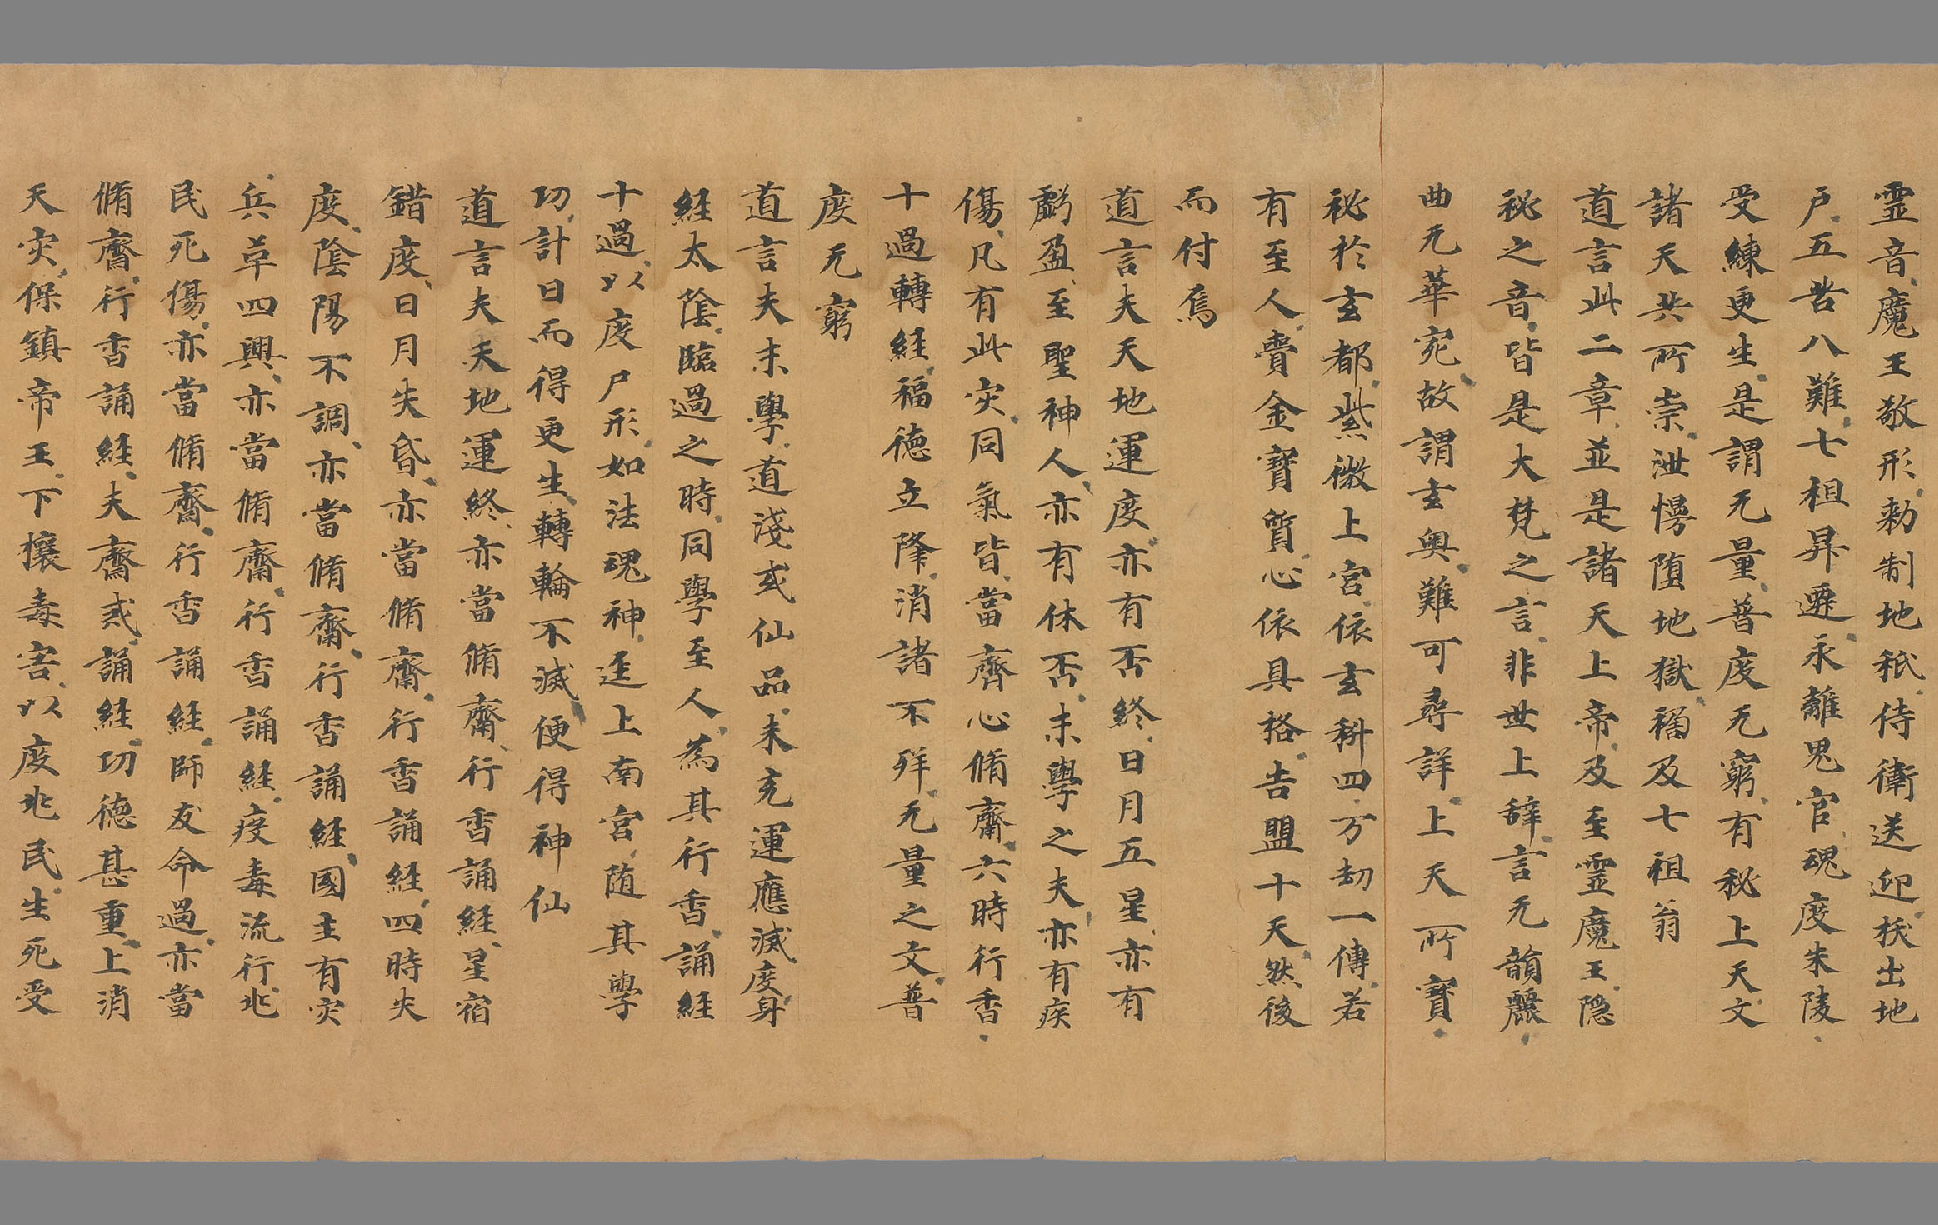 霊音魔王敬形勑制地秖侍衛送迎拔出地
戶五苦八難七祖昇遷永離鬼官魂度朱陵
受練更生是謂无量普度无窮有秘上天文
諸天共所崇泄慢堕地獄禍及七祖翁
道言此二章並是諸天上帝及至霊魔王隱
秘之音皆是大梵之言非世上辞言无韻麗
曲无華宛故謂玄奥難可尋詳上天所寳
秘於玄都紫微上宮依玄科四万劫一傳若
有至人賫金寳質心依具格告盟十天然後
而付焉
道言夫天地運度亦有否終日月五星亦有
虧盈至聖神人亦有休否末學之夫亦有疾
傷凡有此灾同氣皆當齊心脩齋六時行香
十過轉経福德立降消諸不祥无量之文普
度无窮
道言夫末學道淺或仙品未充運應滅度身
経太陰臨過之時同學至人為其行香誦経
十過以度尸形如法魂神迳上南宮随其學
功計日而得更生轉輪不滅便得神仙
道言夫天地運終亦當脩齋行香誦経星宿
錯度日月失昏亦當脩齋行香誦経四時失
度陰陽不調亦當脩齋行香誦経國主有灾
兵革四興亦當脩齋行香誦経疫毒流行兆
民死傷亦當脩齋行香誦経師友命過亦當
脩齋行香誦経夫齋戒誦経功德甚重上消
天灾保鎮帝王下攘毒害以度兆民生死受